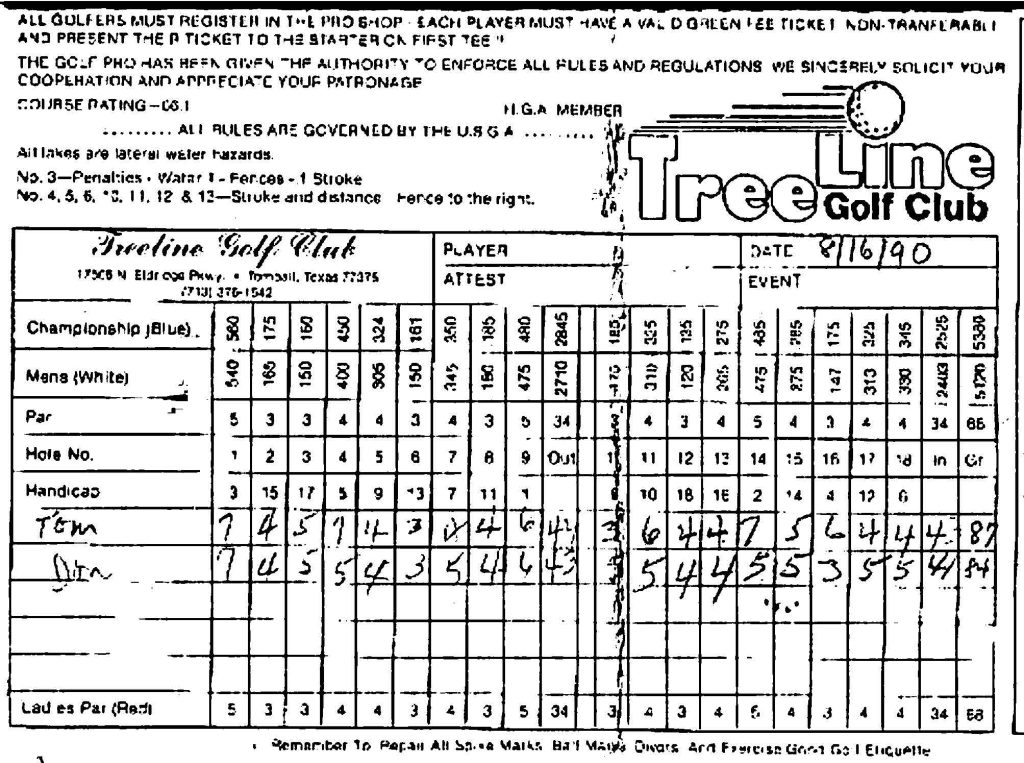 ALL GOLFERS MUST REGISTER IN THE PRO SHOP - EACH PLAYER MUST HAVE A VALID GREEN FEE TICKET NON-TRANFERABLE
AND PRESENT THEIR TICKET TO THE STARTER ON FIRST TEE
THE GOLF PRO HAS BEEN GIVEN THE AUTHORITY TO ENFORCE ALL RULES AND REGULATIONS. WE SINCERELY SOLICIT YOUR
COOPERATION AND APPRECIATE YOUR PATRONAGE
COURSE RATING - 66.1 H.G.A. MEMBER
......... ALL RULES ARE GOVERNED BY THE U.S.G.A. .........
All lakes are lateral water hazards.
No. 3—Penalties - Water 1 - Fences - 1 Stroke
No. 4, 5, 6, 10, 11, 12 & 13—Stroke and distance Fence to the right.
Tree Line
Golf Club
Treeline Golf Club PLAYER DATE 8/16/90
17505 N. Eldridge Pkwy. • Tomball, Texas 77375 ATTEST EVENT
(713) 376-1542
Championship (Blue) 560 175 160 450 324 161 350 185 480 2845 185 325 135 275 485 285 175 325 345 2525 5380
Mens (White) 540 165 150 400 305 150 345 180 475 2710 310 120 265 475 275 147 313 330 2403 5120
Par 5 3 3 4 4 3 4 3 5 34 3 4 3 4 5 4 3 4 4 34 68
Hole No. 1 2 3 4 5 6 7 8 9 Out 11 12 13 14 15 16 17 18 In Gr
Handicap 3 15 17 5 9 13 7 11 1 8 10 18 16 2 14 4 12 6
Tom 7 4 5 7 4 3 4 6 3 6 4 4 7 5 6 4 4 87
7 4 5 5 4 3 5 4 6 43 5 4 4 5 5 3 5 5 41 84
Ladies Par (Red) 5 3 3 4 4 3 4 3 5 34 3 4 3 4 5 4 3 4 4 34 68
Remember To Repair All Spike Marks, Ball Marks, Divots, And Exercise Good Golf Etiquette